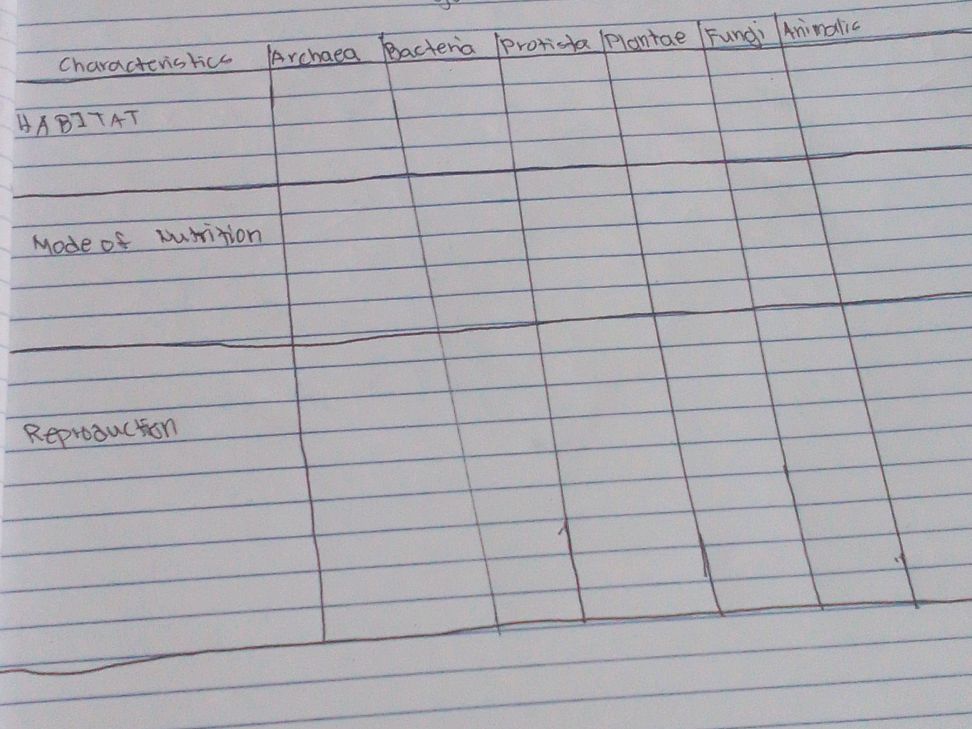 Characteristics Archaea Bacteria Protista Plantae Fungi Animalia
HABITAT
Mode of Nutrition
Reproduction